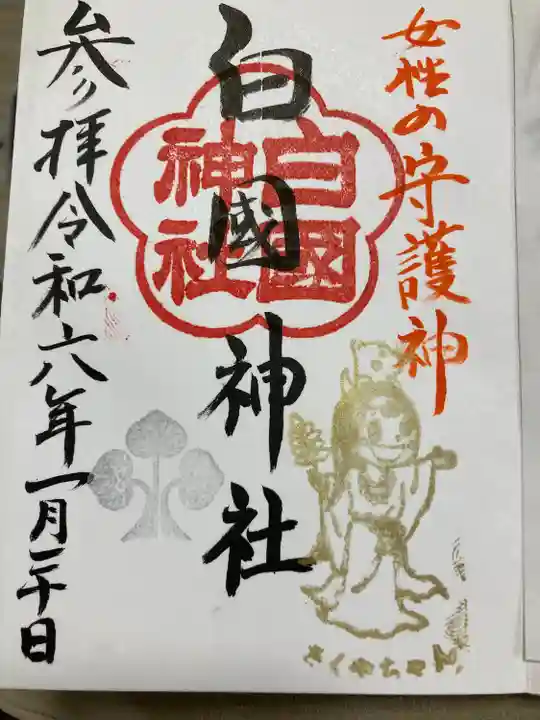 女性の守護神
白國神社
白國
神社
参り拝令和六八年一月二十日
さくやちゃん